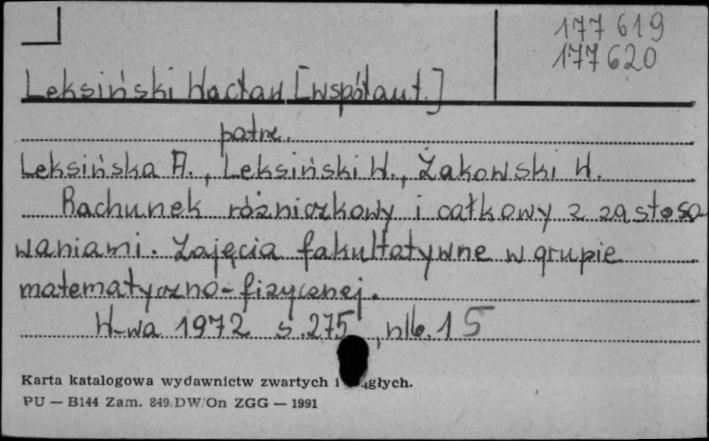 177 619
177 620
Leksiński Wacław [współaut.]
patrz.
Leksińska A., Leksiński W., Żakowski W.
Rachunek różniczkowy i całkowy z zastoso
waniami. Zajęcia fakultatywne w grupie
matematyczno-fizycznej.
W-wa 1972 s.275, nlb.15
Karta katalogowa wydawnictw zwartych i
PU — B144 Zam. 849. DW/On ZGG — 1991